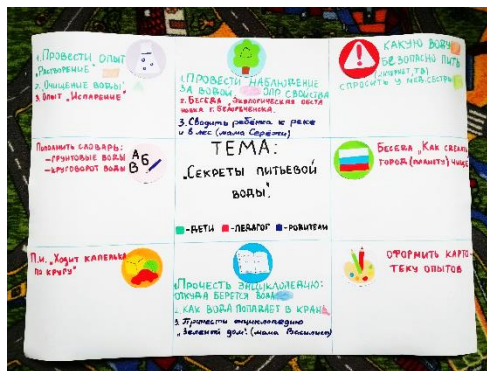 1. Провести опыт
"Растворение"
2. Очищение воды"
3. Опыт "Испарение"
1. Провести наблюдение
за водой, опр свойства
2. Беседа "Экологическая обста
новка г. Белореченска.
3. Сводить ребёнка к реке
и в лес (мама Серёжи)
Какую воду
безопасно пить
(интернет, ТВ)
спросить у мед.сестры
Пополнить словарь:
-грунтовые воды
-круговорот воды
А Б
В
Тема:
"Секреты питьевой
воды".
-дети -педагог -родители
Беседа "Как сделать
город (планету) чище
П.и. "Ходит капелька
по кругу"
1. Прочесть энциклопедию:
откуда берется вода
2. Как вода попадает в кран
3. Принести энциклопедию
"Зеленый дом". (мама Василисы)
Оформить карто-
теку опытов